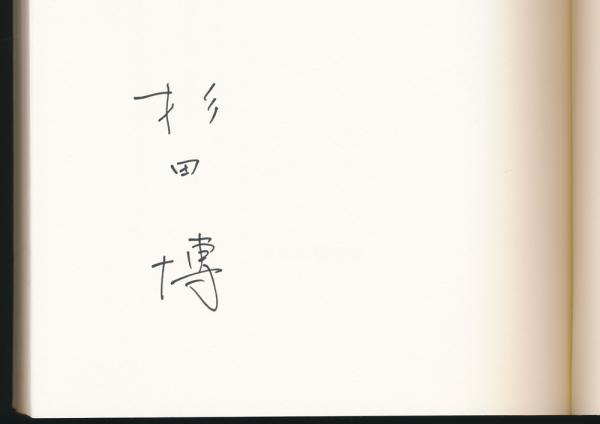 杉田博